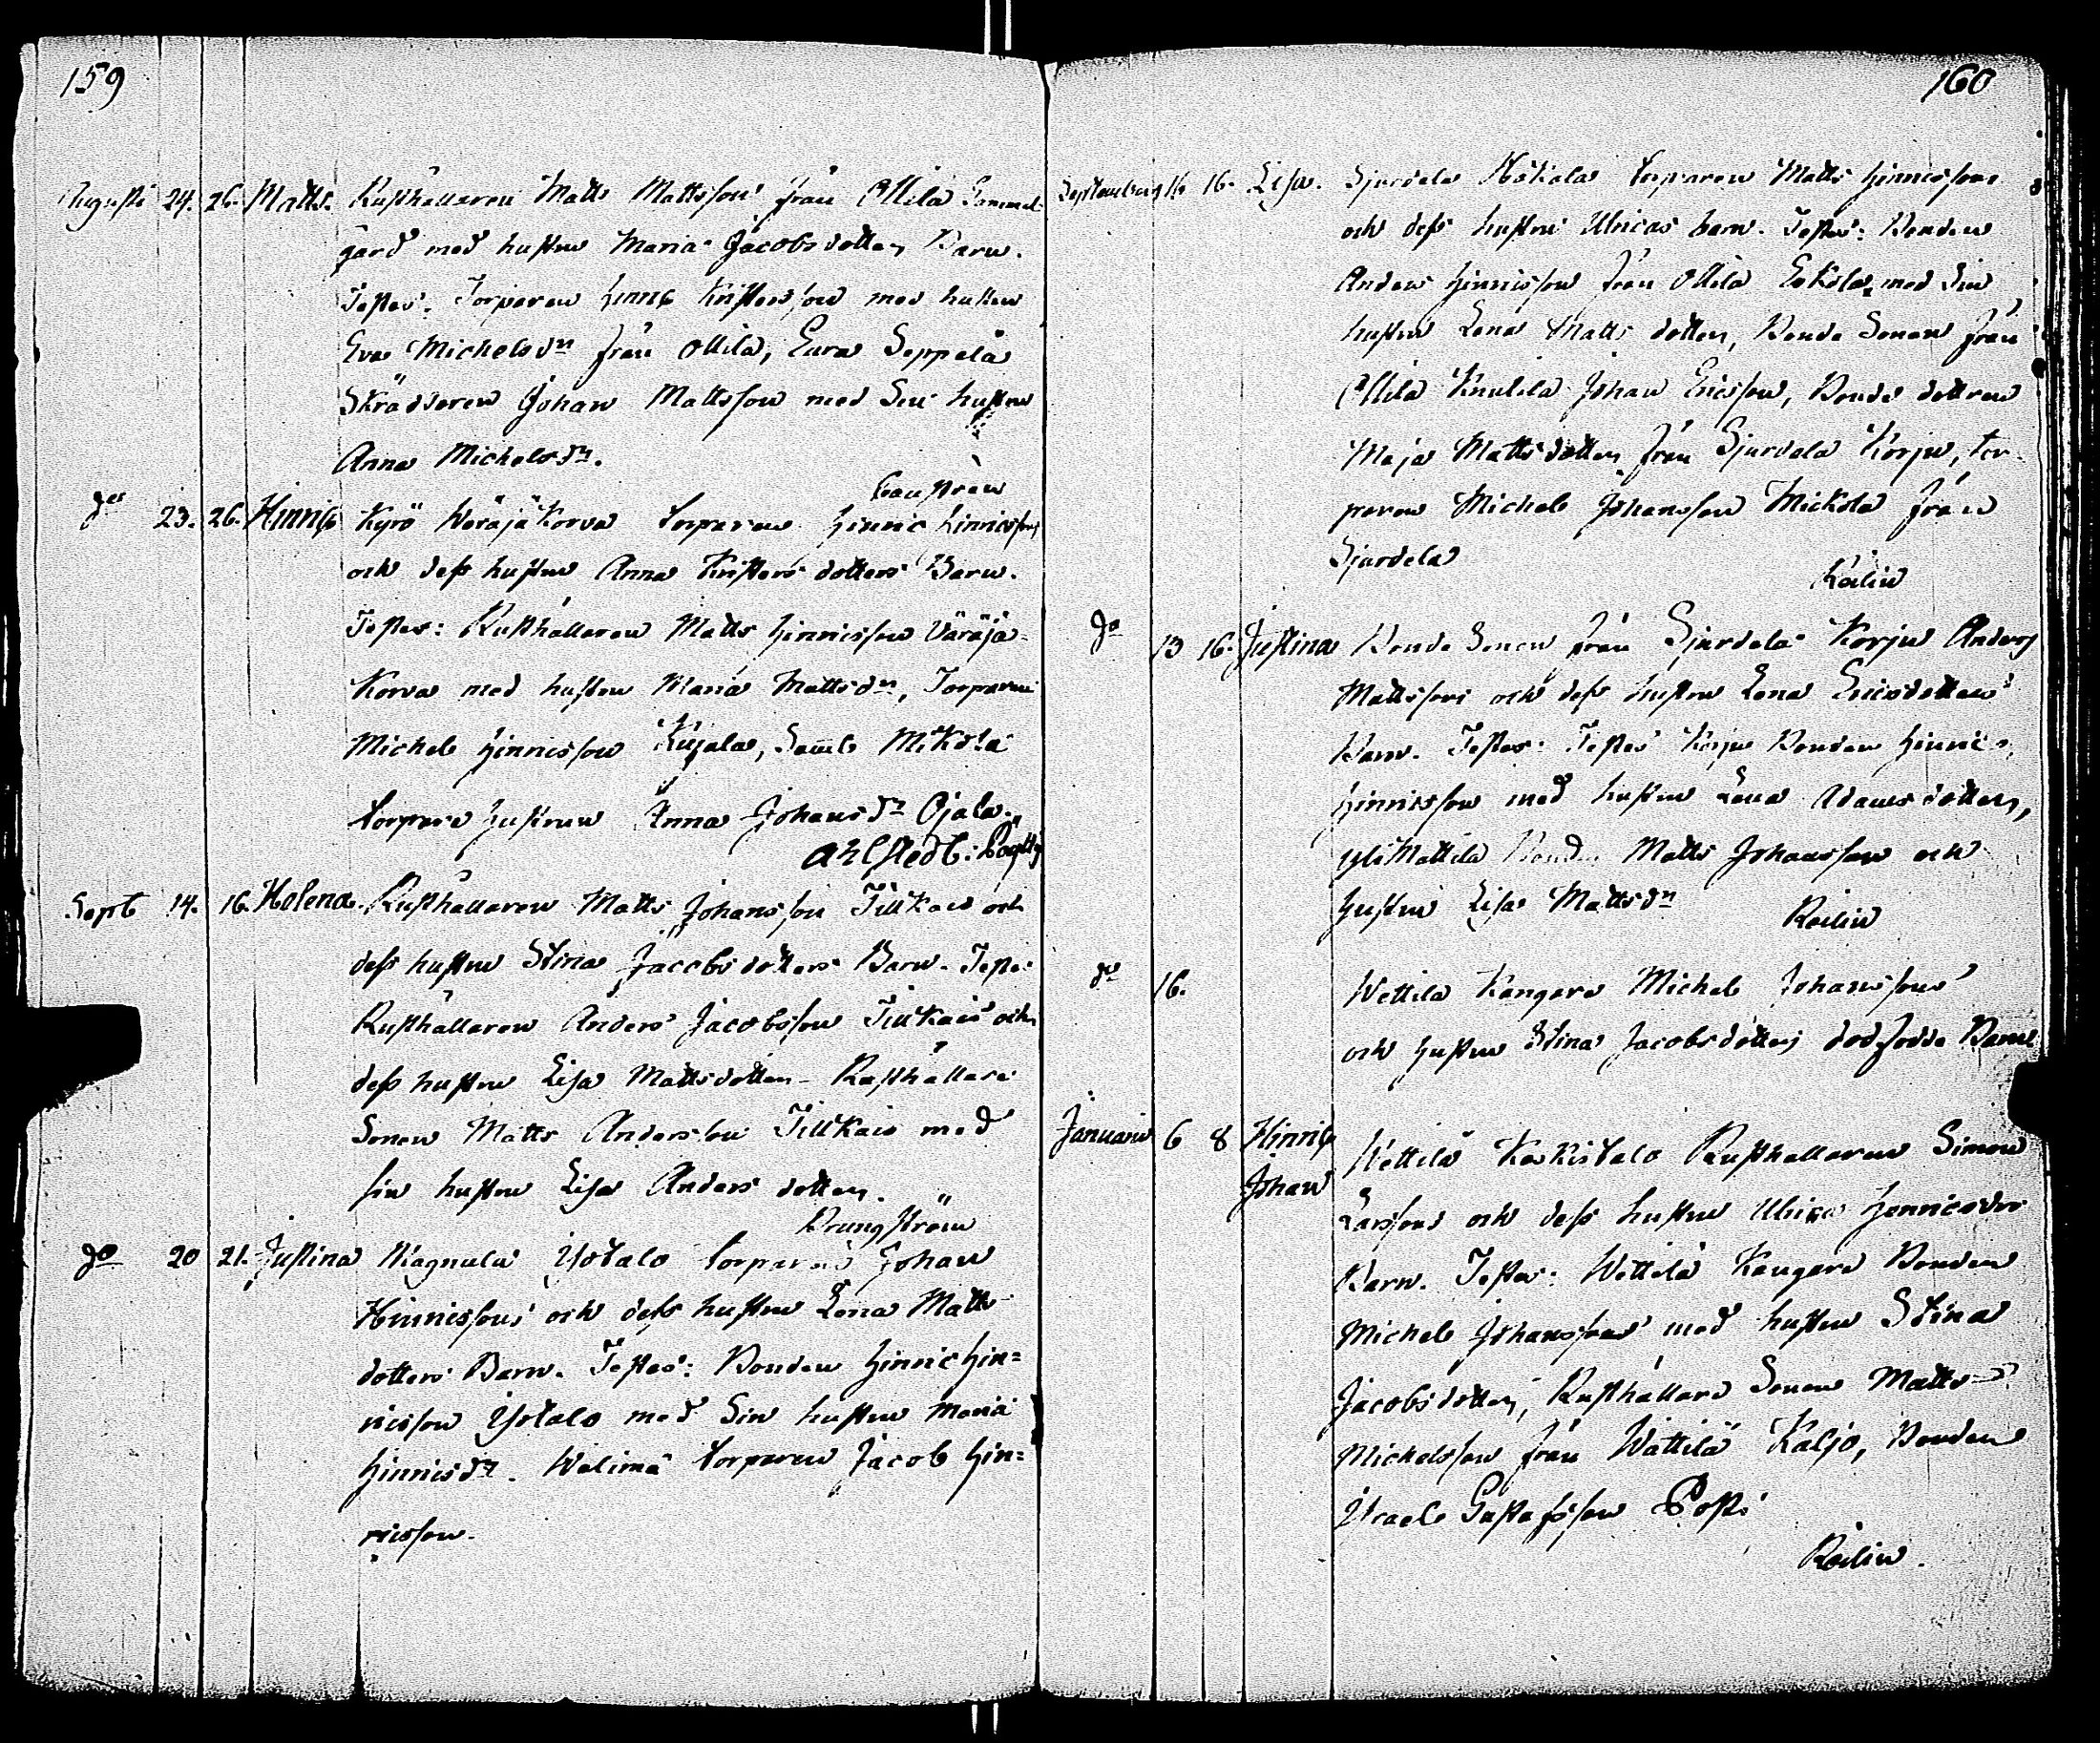 159
Augusti 24. 26. Matts. Rusthållaren Matts Mattsson från Ollila Gammel-
gård med hustru Maria Jacobsdotters Barn.
Testes: Torparen Hinric Kristersson med hustru
Eva Michelsdr från Ollila, Eura Seppälä
Skräddaren Johan Mattsson med Sin hustru
Anna Michelsdr.
do 23. 26. Hinric Kyrö Wäräjä Korva torparen Hinric Hinricsson
och dess hustru Anna Kristers dotters Barn.
Testes: Rusthållaren Matts Hinricsson Väräjä-
Korva med hustru Maria Mattsdr, Torparen
Michel Hinricsson Kujala, Samt Mikola
torpare hustrun Anna Johansdr Ojala.
Ahlstedt:
Sept 14. 16. Helena. Rusthållaren Matts Johansson Tillkais och
dess hustru Stina Jacobs dotters Barn. Testes
Rusthållaren Anders Jacobsson Tillkais och
dess hustru Lisa Mattsdotter Rusthållare
Sonen Matts Andersson Tillkais med
sin hustru Lisa Anders dotter.
Prungström
do 20 21. Justina Magnula Ysotalo torparens Johan
Hinricssons och dess hustru Lena Matts
dotters Barn. Testes: Bonden Hinric Hin=
ricsson Ysotalo med Sin hustru Maria
Hinricsdr. Welimä torparen Jacob Hin=
ricsson.
160
September 14 16. Lisa. Sjurdela torparen Matts Hinricssons
och dess hustru Ulricas barn. Testes: Bonden
Anders Hinricsson från Ollila Eskola med Sin
hustru Lena Matts dotter, Bonde Sonen från
Ollila Knutila Johan Ericsson, Bonde dottren
Maja Matts dotter från Sjurdela Korju, tor-
paren Michel Johansson Mickola från
Sjurdela
Roilin
do 13 16. Justina Bonde Sonen från Sjurdela Korju Anders
Mattssons och dess hustru Lena Ericsdotters
Barn. Testes: Testes Korju Bonden Hinric
Hinricsson med hustru Lena Adamsdotter,
Yli Mattila Matts Johansson och
hustru Lisa Mattsdr
Roilin
do 16. Wettilä Kangars Michel Johanssons
och hustru Stina Jacobsdotters dodfödde Barn
Januari 6 8 Hinric Wettilä Keskitalo Rusthållaren Simon
Johan Larssons och dess hustru Ulrica Henricsdrs
Barn. Testes: Wettilä Kangars Bonden
Michel Johansson med hustru Stina
Jacobsdotter, Rusthållare Sonen Matts
Michelsson från Wättilä Kaljo, Bonden
Israel Gustafsson Posti
Roilin.